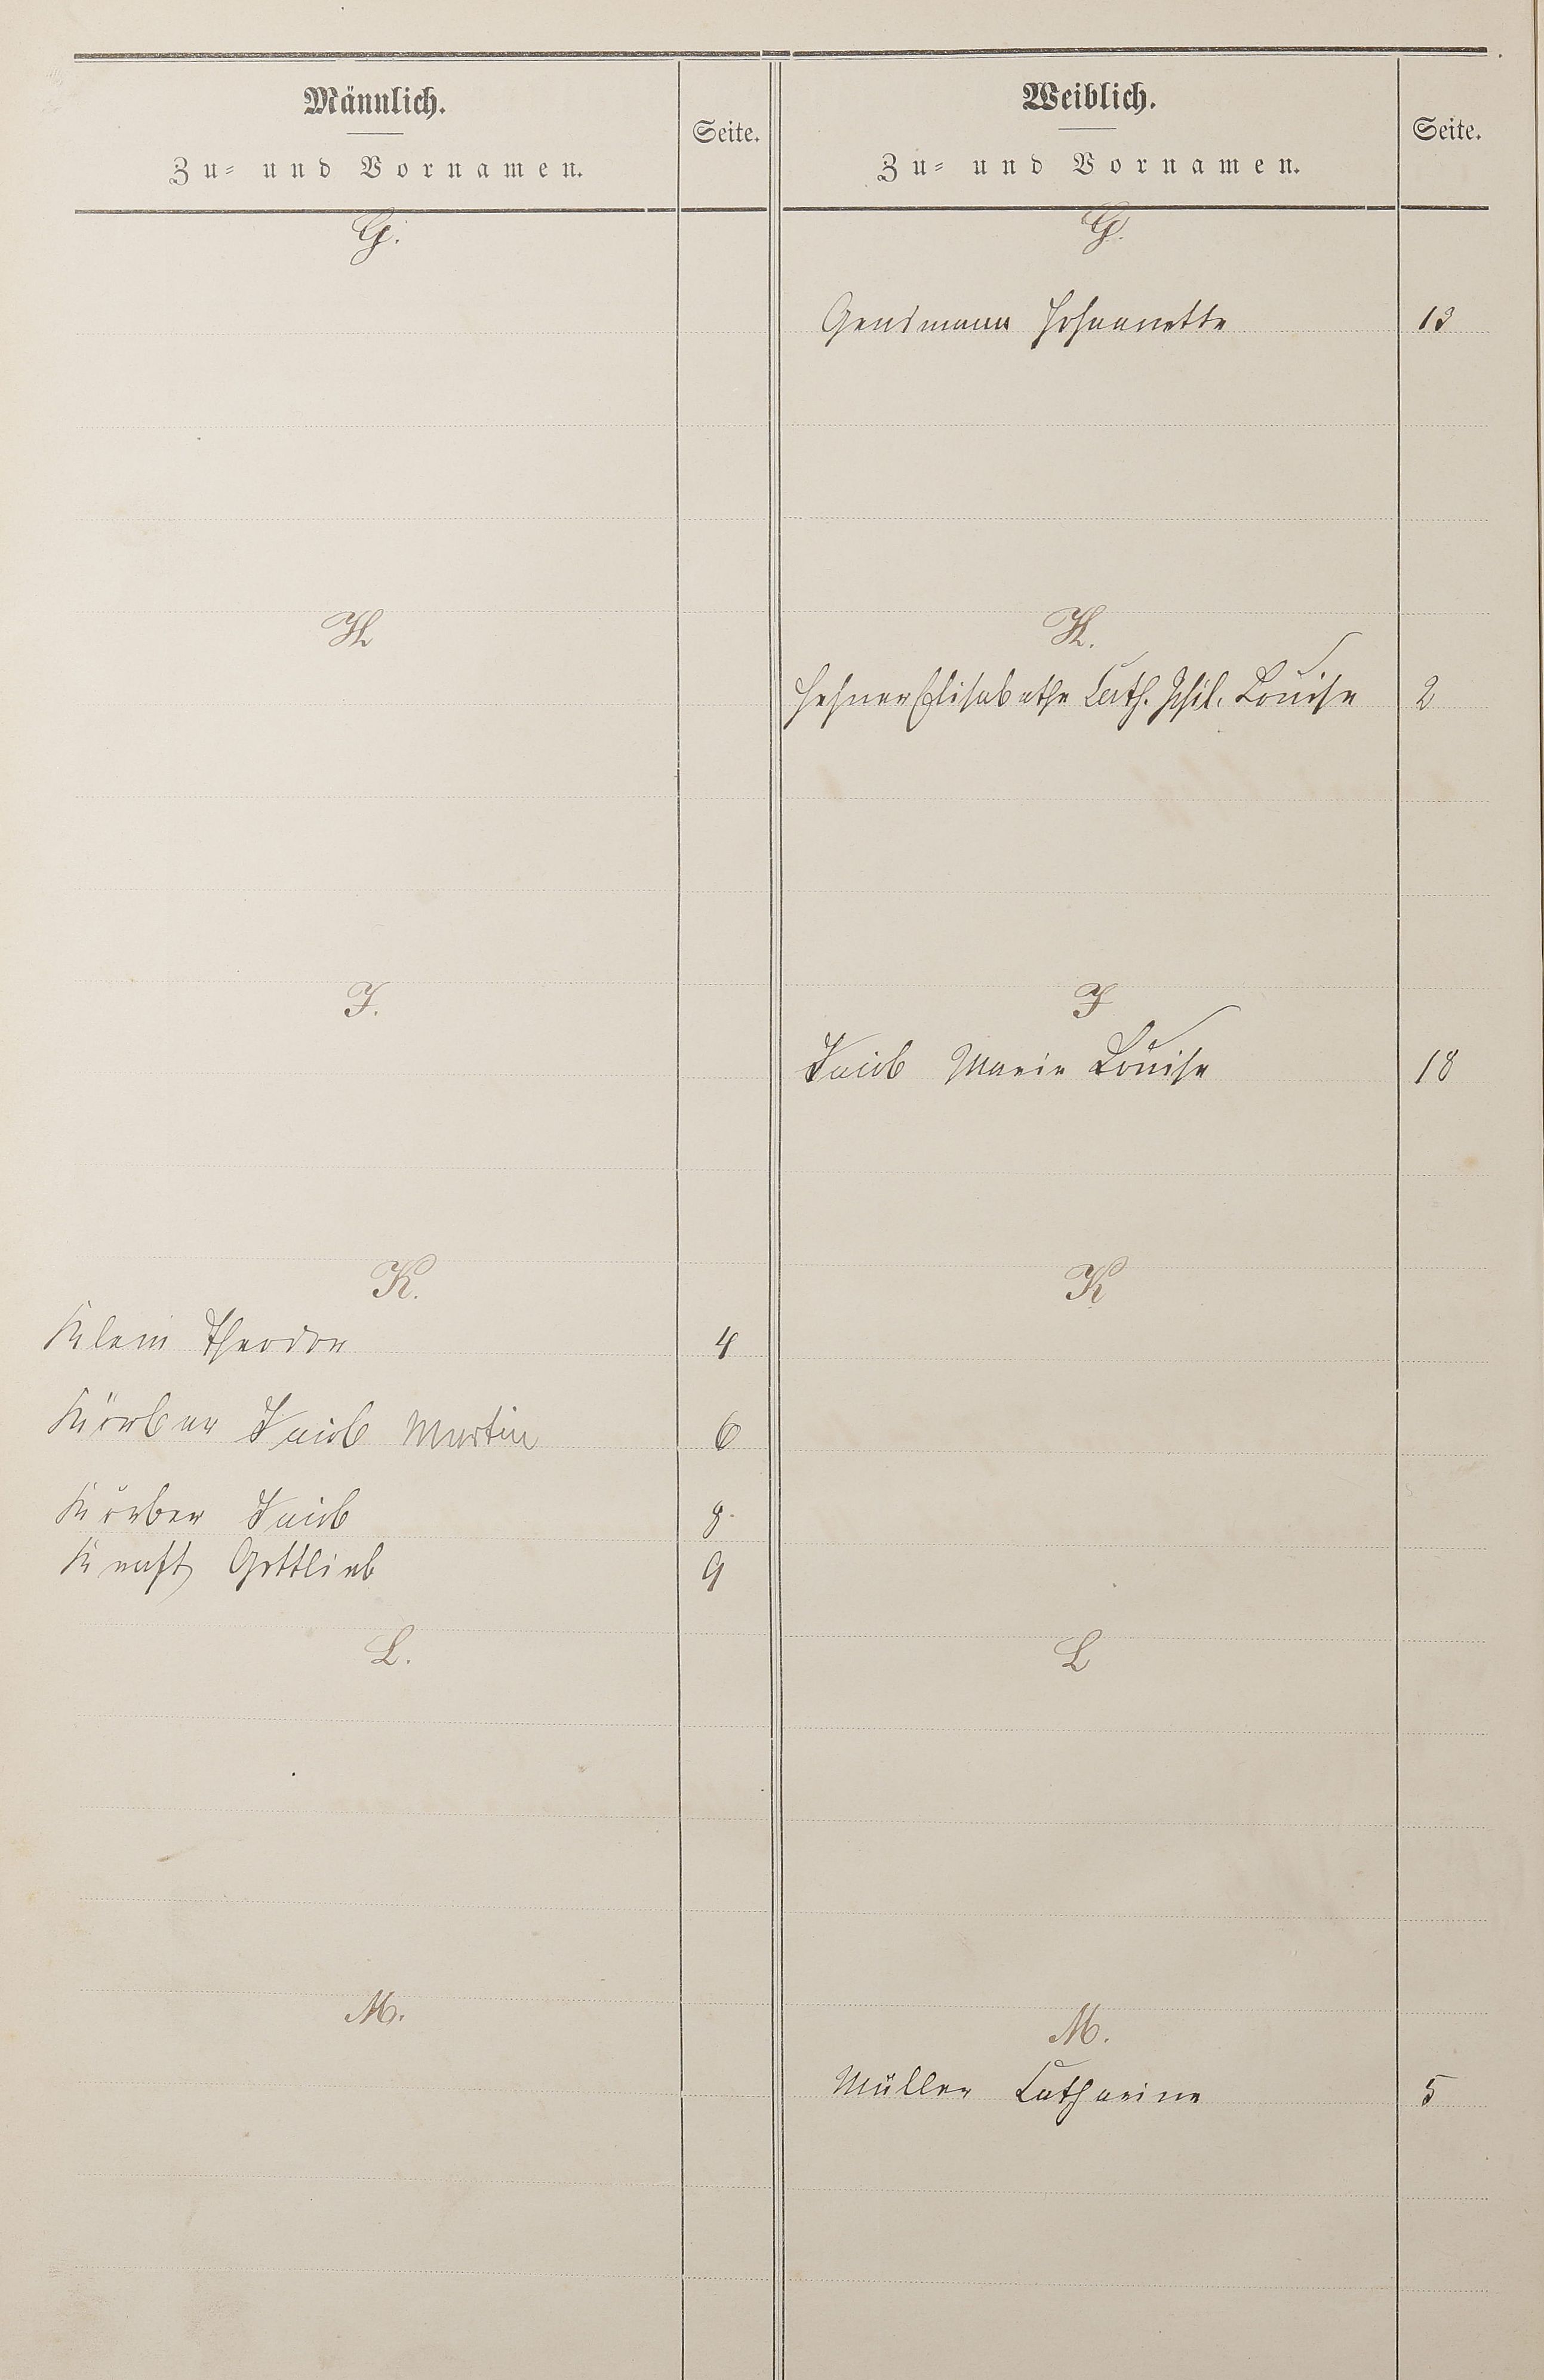 Männlich.
Zu- und Vornamen.
Seite.
Weiblich.
Zu- und Vornamen.
Seite.
G.
G.
Johannette 13
H
H.
Hehner Elisabethe Cath. Phil. Louise 2
J.
J
Jacob Marie Louise 18
K.
K
Klein Theodor 4
Körber Jacob Martin 6
Körber Jacob 8.
Kraft Gottlieb 9
L.
L
M.
M.
Müller Catharine 5